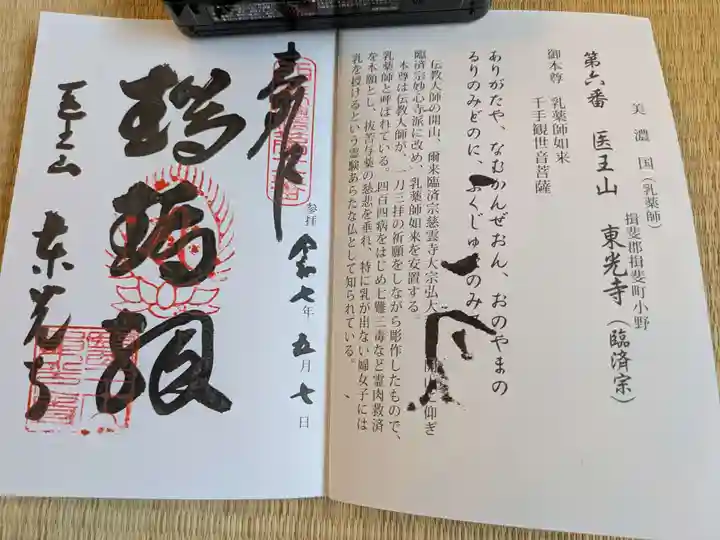 美濃国(乳薬師)
揖斐郡揖斐町小野
第六番 医王山 東光寺(臨済宗)
御本尊 乳薬師如来
千手観世音菩薩
ありがたや、なむかんぜおん、おのやまの
るりのみどのに、ふくじゅ のみ
伝教大師の開山、爾来臨済宗慈雲寺大宗弘大 に仰ぎ
臨済宗妙心寺派に改め、乳薬師如来を安置する。
本尊は伝教大師が、一刀三拝の祈願をしながら彫作したもので、
乳薬師と呼ばれている。四百四病をはじめ七難三毒など霊肉救済
を本願とし、抜苦与薬の慈悲を垂れ、特に乳が出ない婦女子には
乳を授けるという霊験あらたな仏として知られている。
奉拝
参拝 令七年五月七日
医王山 東光寺